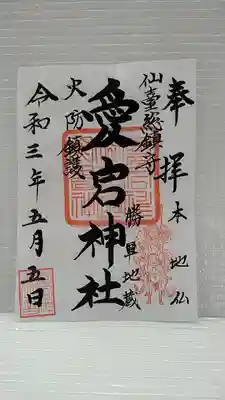 奉拝
本地仏
仙臺総鎮守
勝軍地蔵
愛宕神社
火防鎮護
令和三年五月五日